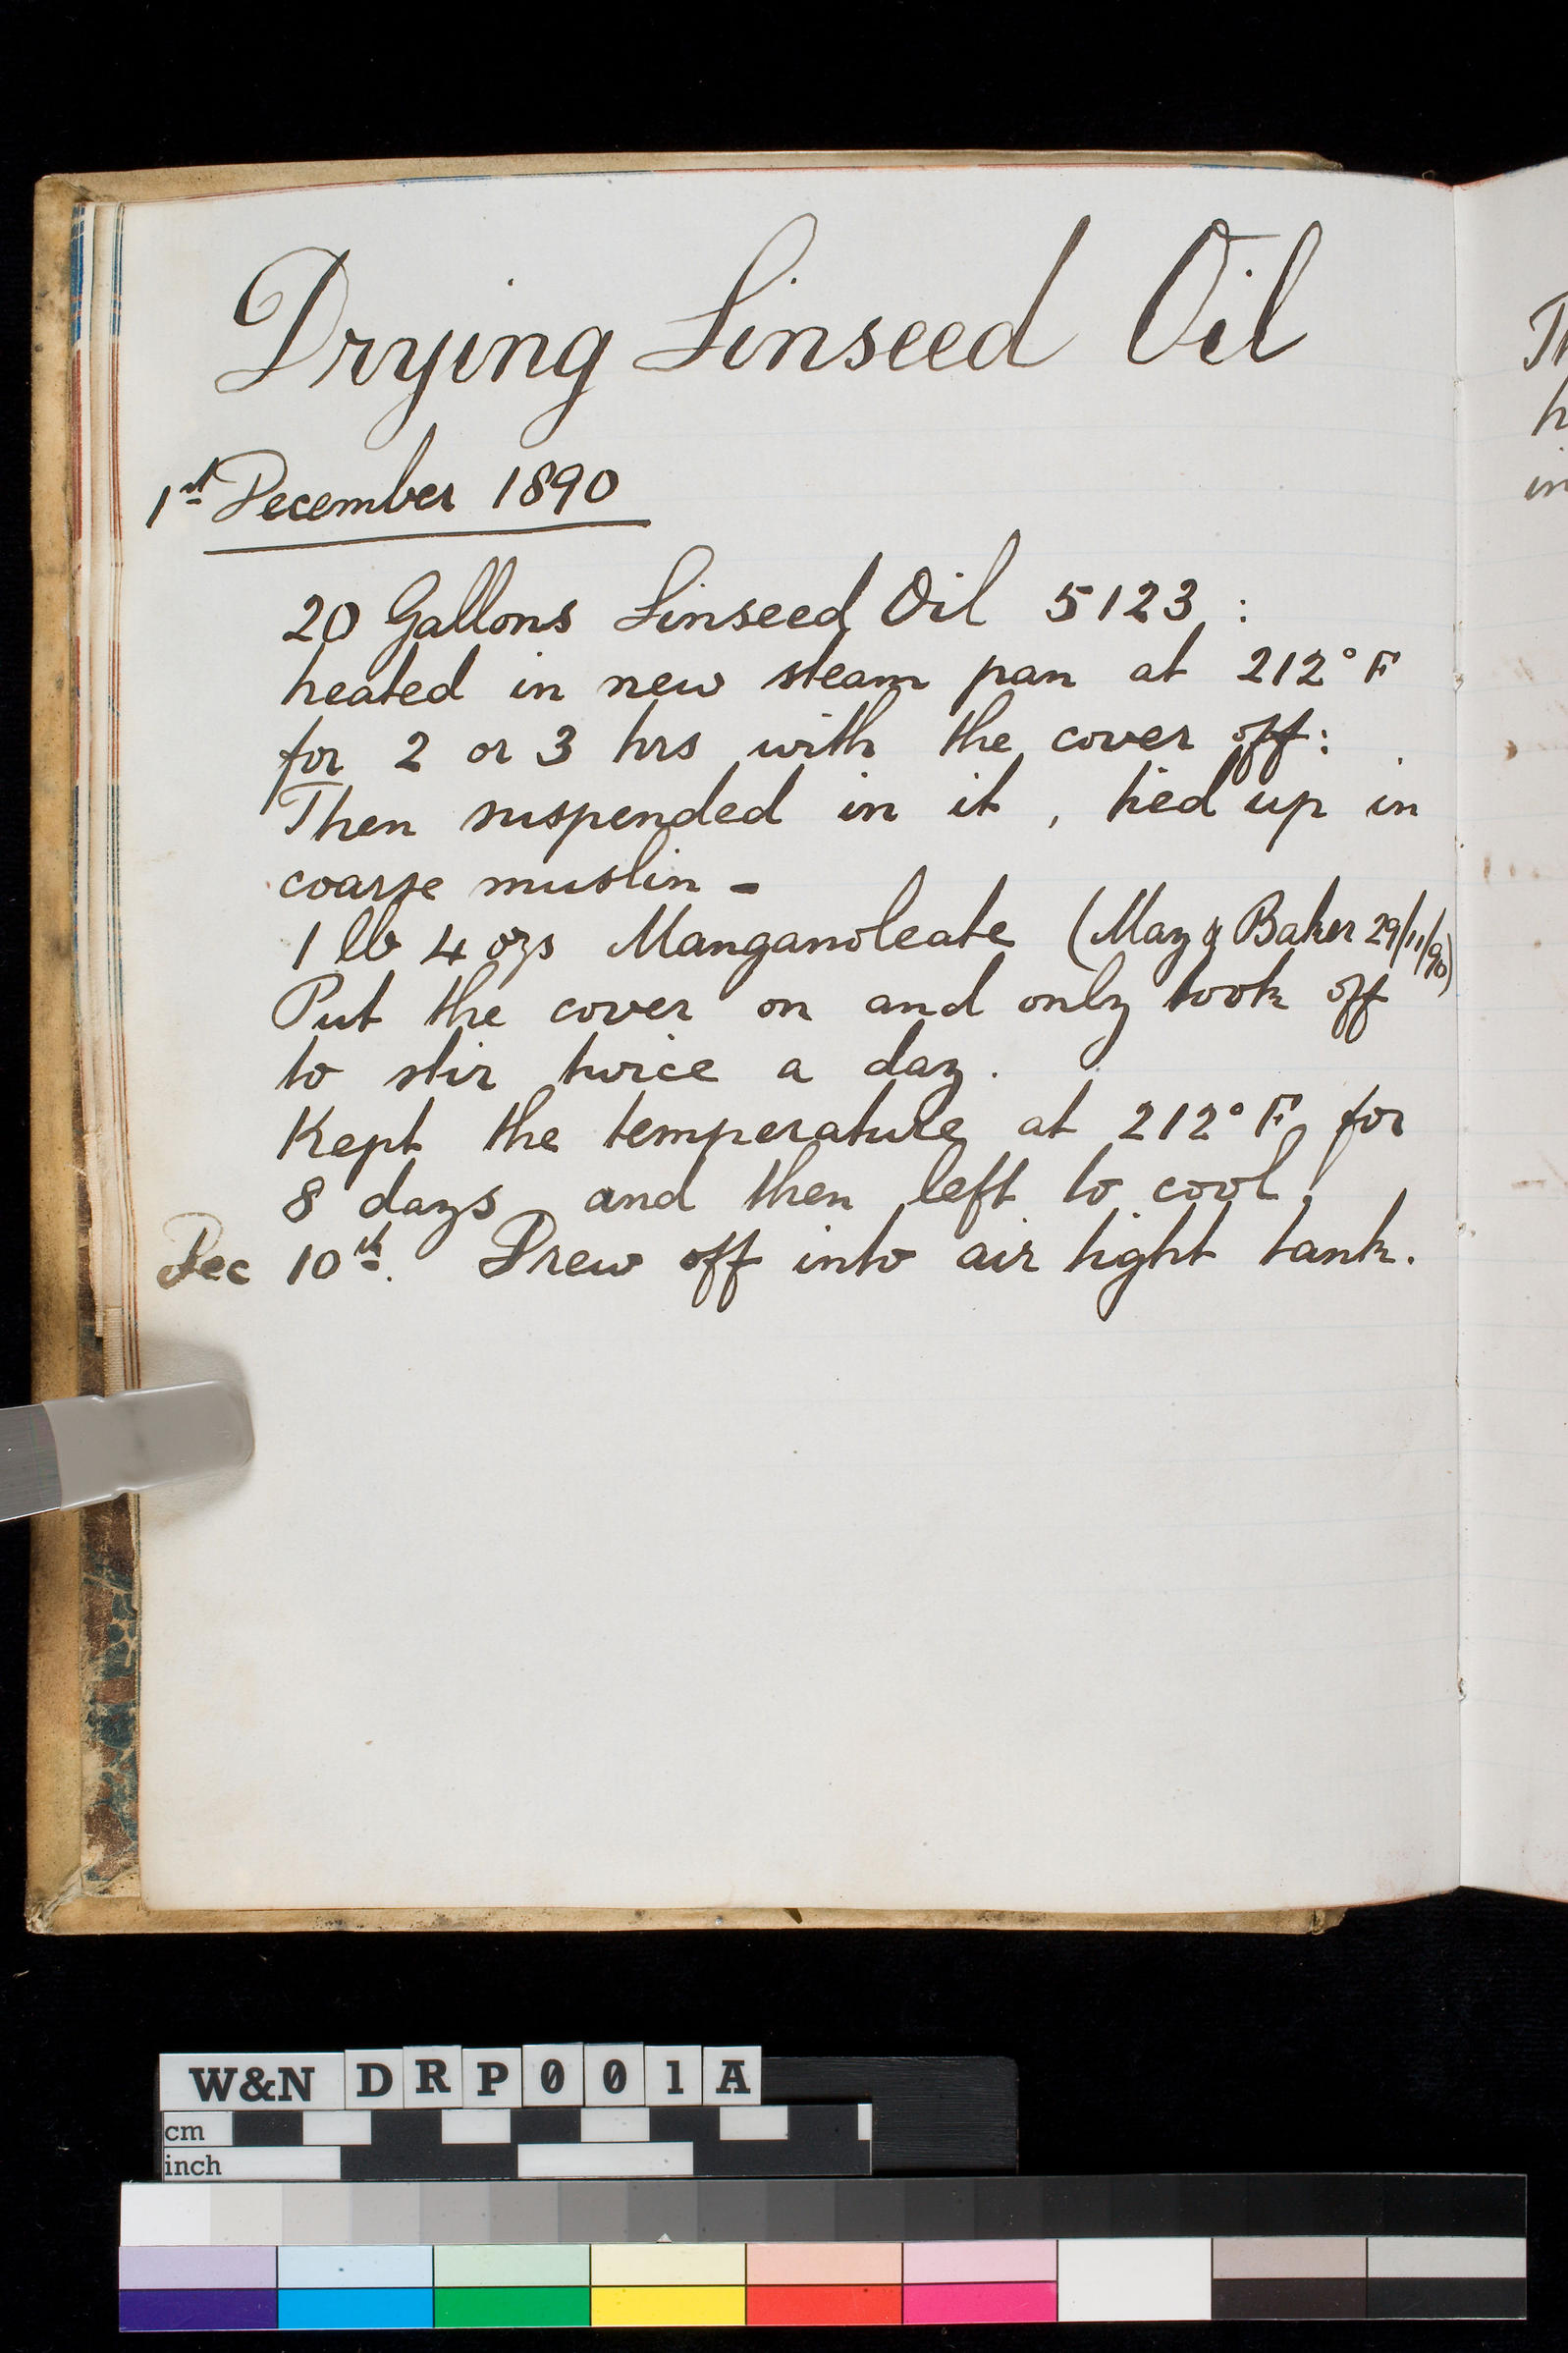 Drying Linseed Oil
1st December 1890
20 Gallons Linseed Oil 5123 :
heated in new steam pan at 212° F
for 2 or 3 hrs with the cover off :
Then suspended in it , tied up in
coarse muslin -
1 lb 4 ozs Manganoleate (May & Baker 29/11/90)
Put the cover on and only took off
to stir twice a day .
Kept the temperature at 212° F for
8 days and then left to cool .
Dec 10th. Drew off into air tight tank.
Th
h
in
W&N DRP001A
cm
inch